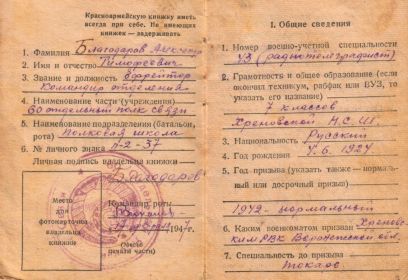 Красноармейскую книжку иметь
всегда при себе. Не имеющих
книжек — задерживать
1. Фамилия Благодаров Алек-андр
2. Имя и отчество Тимофеевич
3. Звание и должность Ефрейтор
Командир отделения
4. Наименование части (учреждения)
60 отдельный полк связи
5. Наименование подразделения (батальон,
рота) Полковая школа
6. № личного знака Л-2-37
Личная подпись владельца книжки
Благодаров
Место
для
фотокарточки
владельца
книжки
Командир роты
1947 г.
(место
печати части)
I. Общие сведения
1. Номер военно-учетной специальности
УЗ (радиотелеграфист)
2. Грамотность и общее образование (если
окончил техникум, рабфак или ВУЗ, то
указать его название)
7 классов
Хреновской Н.С.Ш.
3. Национальность Русский
4. Год рождения 4.6.1924
5. Год призыва (указать также — нормаль-
ный или досрочный призыв)
1942 - нормальный
6. Каким военкоматом призван Хренов-
ским РВК Воронежской обл.
7. Специальность до призыва
токарь